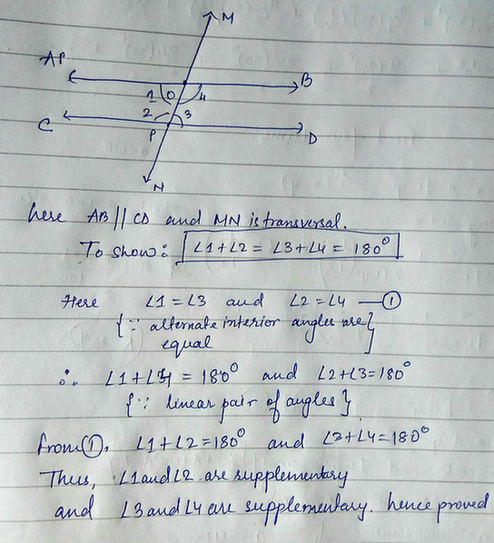 M
AP
B
1 O 4
2 3
C
P
D
N
here AB||CD and MN is transversal.
To show: ∠1+∠2 = ∠3+∠4 = 180°
Here ∠1=∠3 and ∠2=∠4 —①
{∵ alternate interior angles are}
equal
∴ ∠1+∠4 = 180° and ∠2+∠3=180°
{∵ linear pair of angles}
from①, ∠1+∠2=180° and ∠3+∠4=180°
Thus, ∠1 and ∠2 are supplementary
and ∠3 and ∠4 are supplementary. hence proved